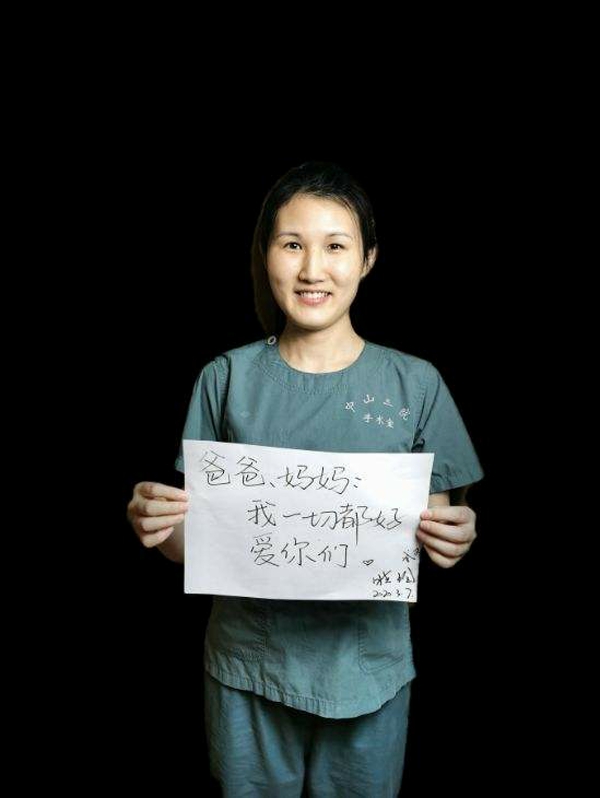 中山三院
手术室
爸爸、妈妈：
我一切都好
爱你们。
2020.3.7